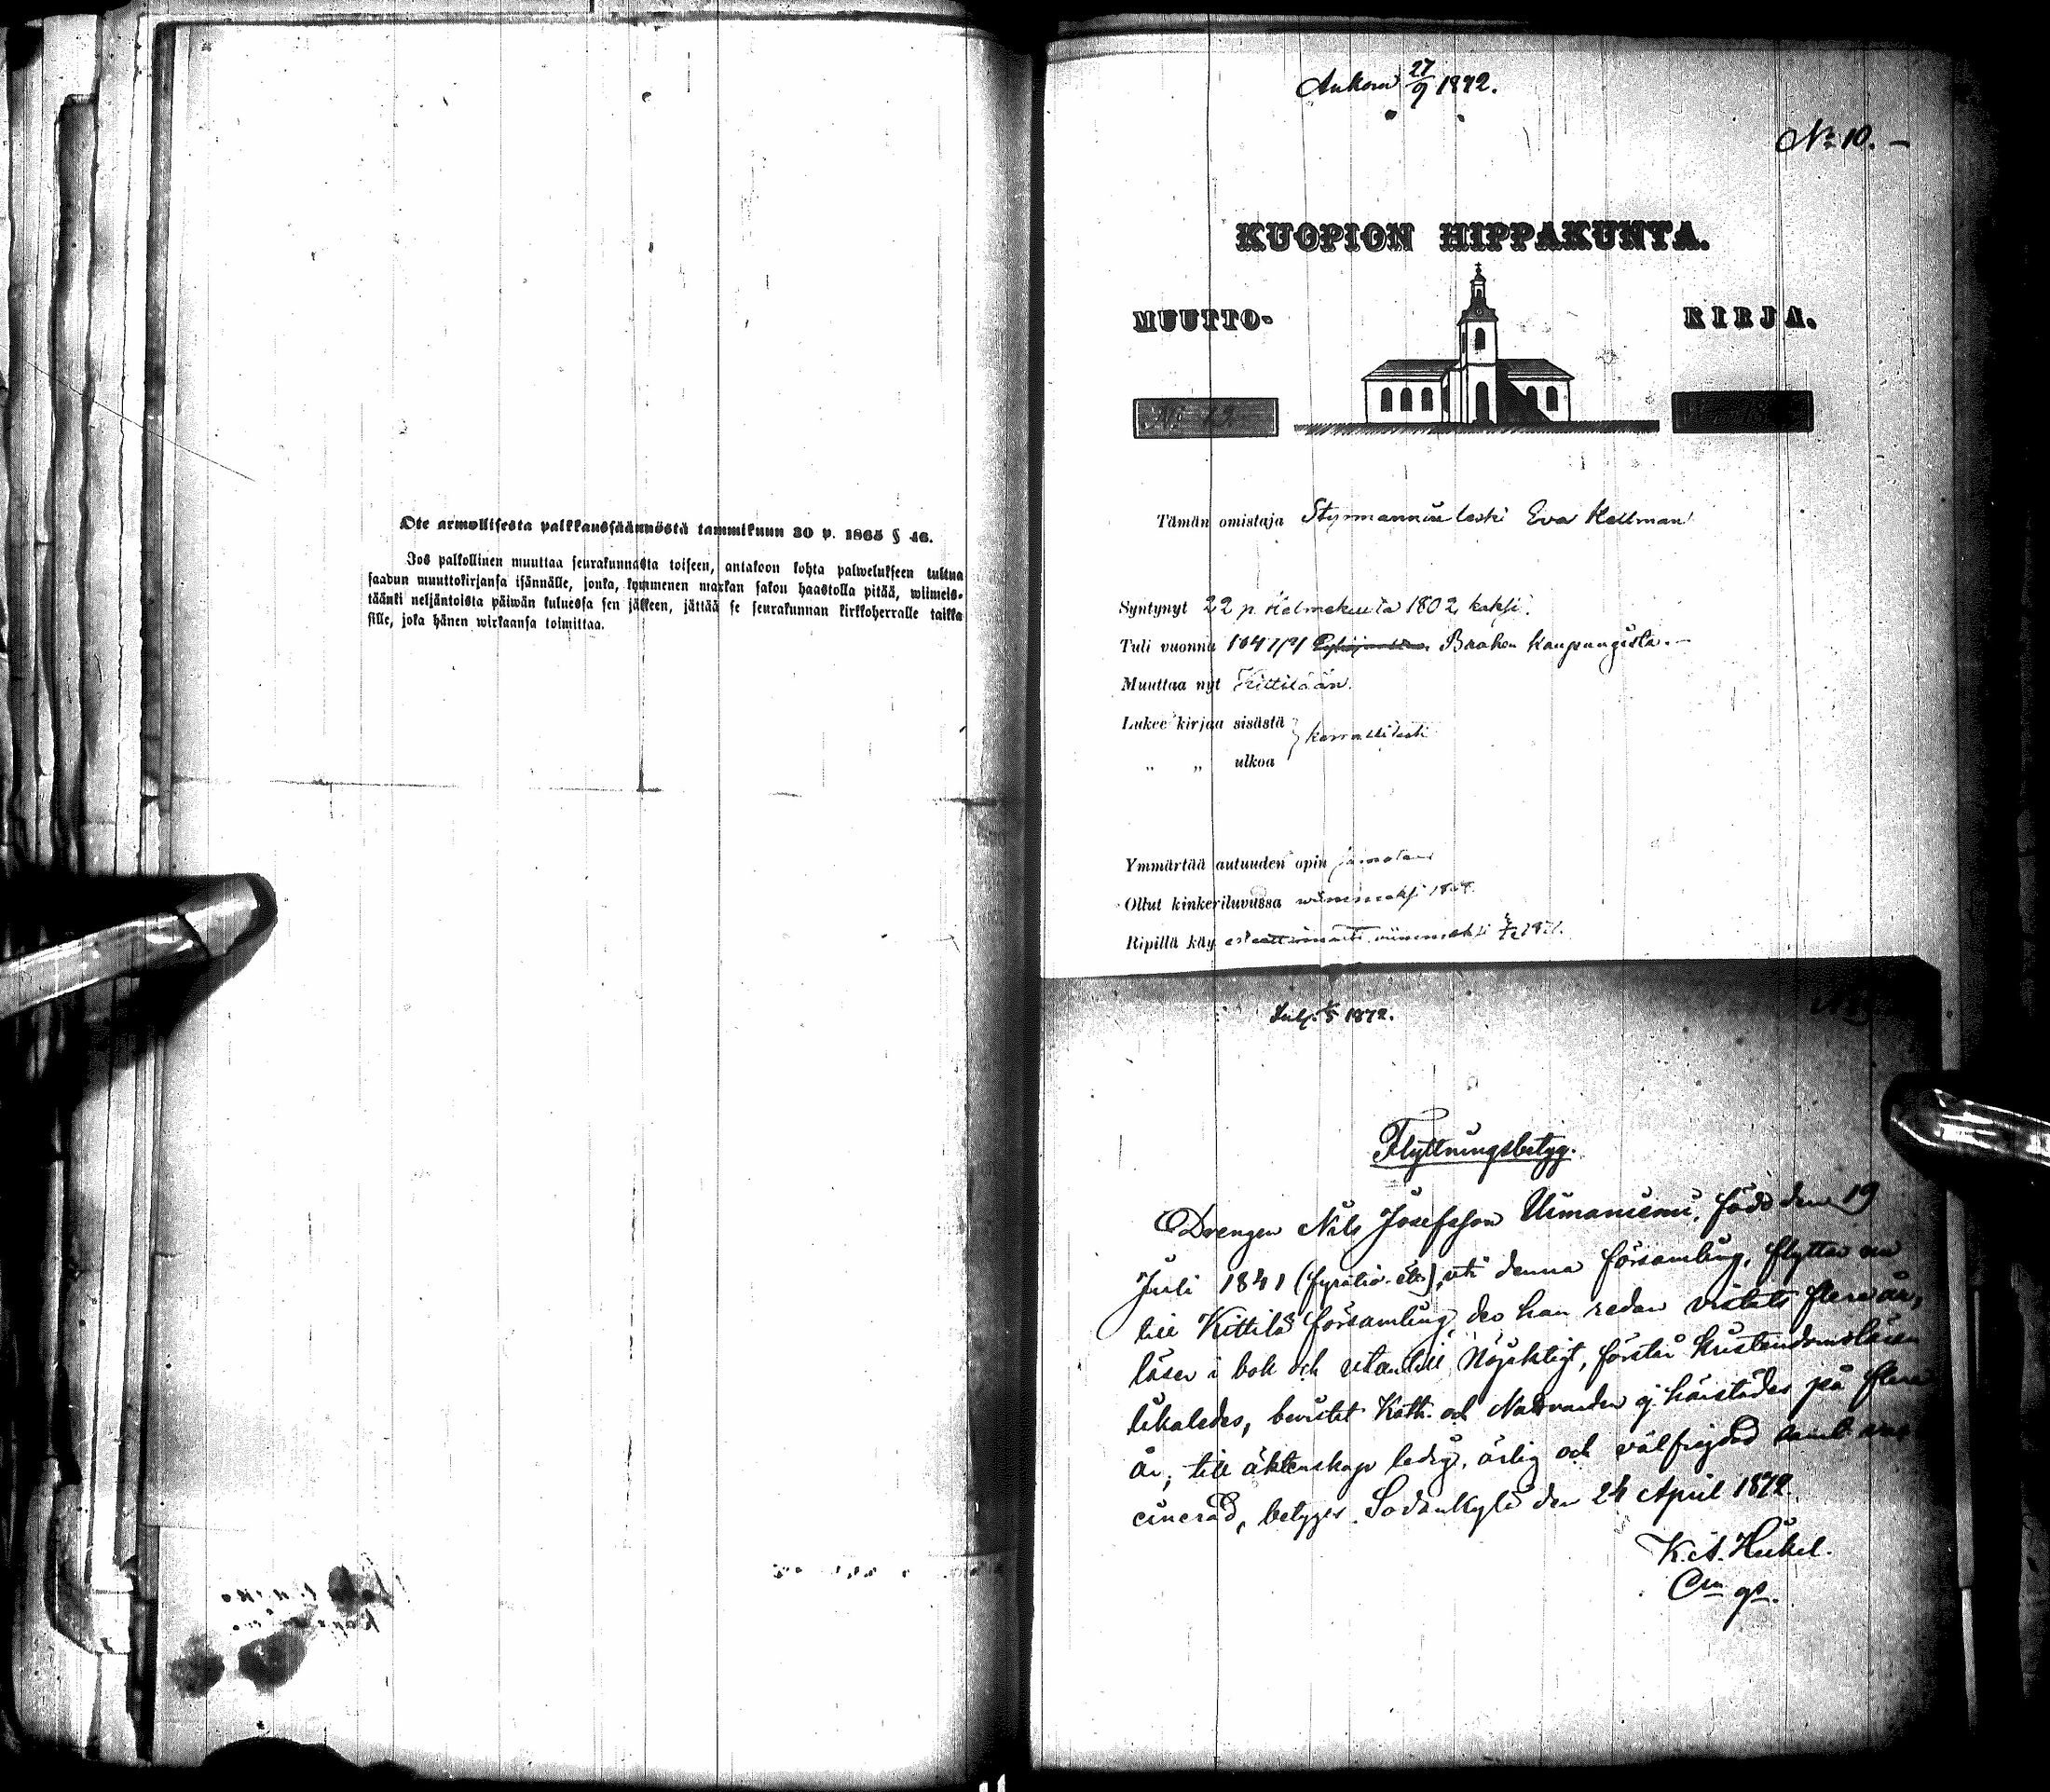 Ote armollisesta palkkaussäännöstä tammikuun 30 p. 1865 § 46.
Jos palkollinen muuttaa seurakunnasta toiseen, antakoon kohta palwelukseen tultua
saadun muuttokirjansa isännälle, jonka, kymmenen markan sakon haastolla pitää, wiimeis-
täänki neljäntoista päiwän kuluessa sen jälkeen, jättää se seurakunnan kirkkoherralle taikka
sille, joka hänen wirkaansa toimittaa.
Ankom 27/9 1872.
No 10.
KUOPION HIPPAKUNTA.
MUUTTO-
KIRJA.
Tämän omistaja Styrmannin leski Eva Hellman
Syntynyt 22 p. Helmekuuta 1802 kaksi.
Tuli vuonna Brahen kaupungista.
Muuttaa nyt Kittilään.
Lukee kirjaa sisästä
„ „ ulkoa
Ymmärtää autuuden opin
Ollut kinkeriluvussa wiimmeksi
Ripillä käy esteettömästi wiimmeksi
1872.
Flyttningsbetyg.
Drengen Nils Josefsson Uimaniemi, född den 19
Juli 1841 (fyratio ett), uti denna församling, flyttar nu
till Kittilä församling, der han redan vistats flera år,
läser i bok och utantill nöjaktigt, förstår kristendomsläran
likaledes, bevistat Kath. och Nattvarden ej härstädes på flera
år, till äktenskap ledig, ärlig och välfrejdad samt
betygar. Sodankylä den 24 April 1872.
K. A. Heikel.